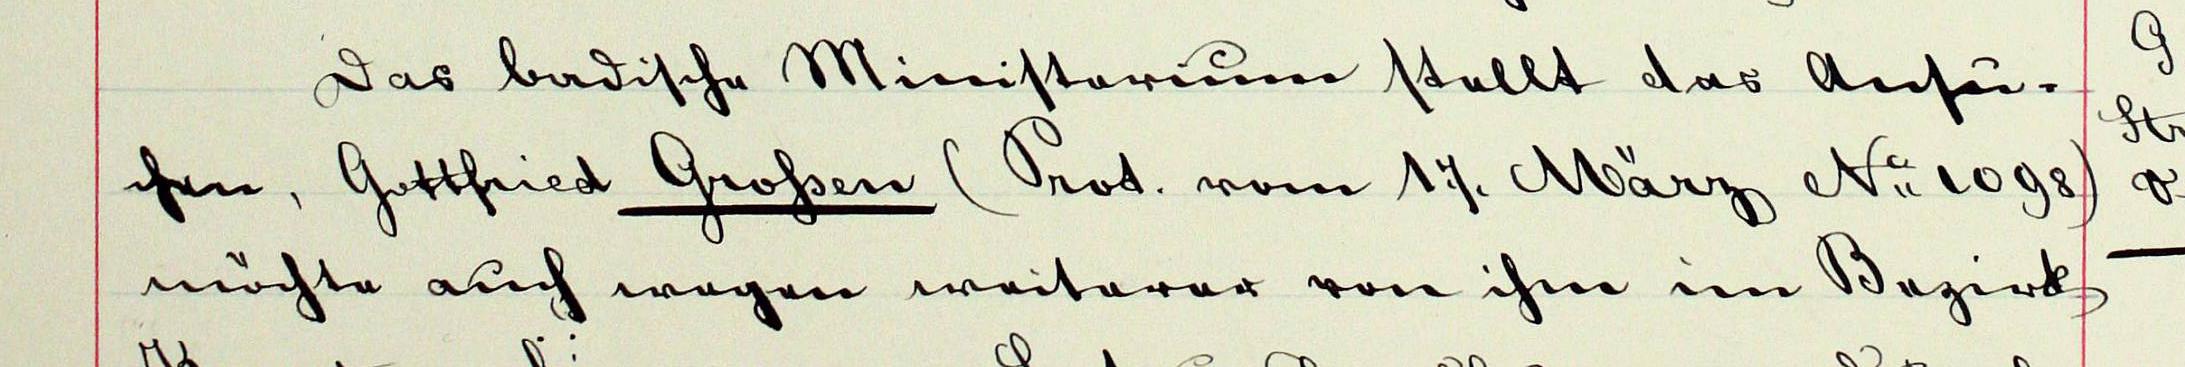 Das badische Ministerium stellt das Ansu-
chen, Gottfried Großen (Prot. vom 17. März No. 1098)
möchte auch wegen weiterer von ihm im Bezirk